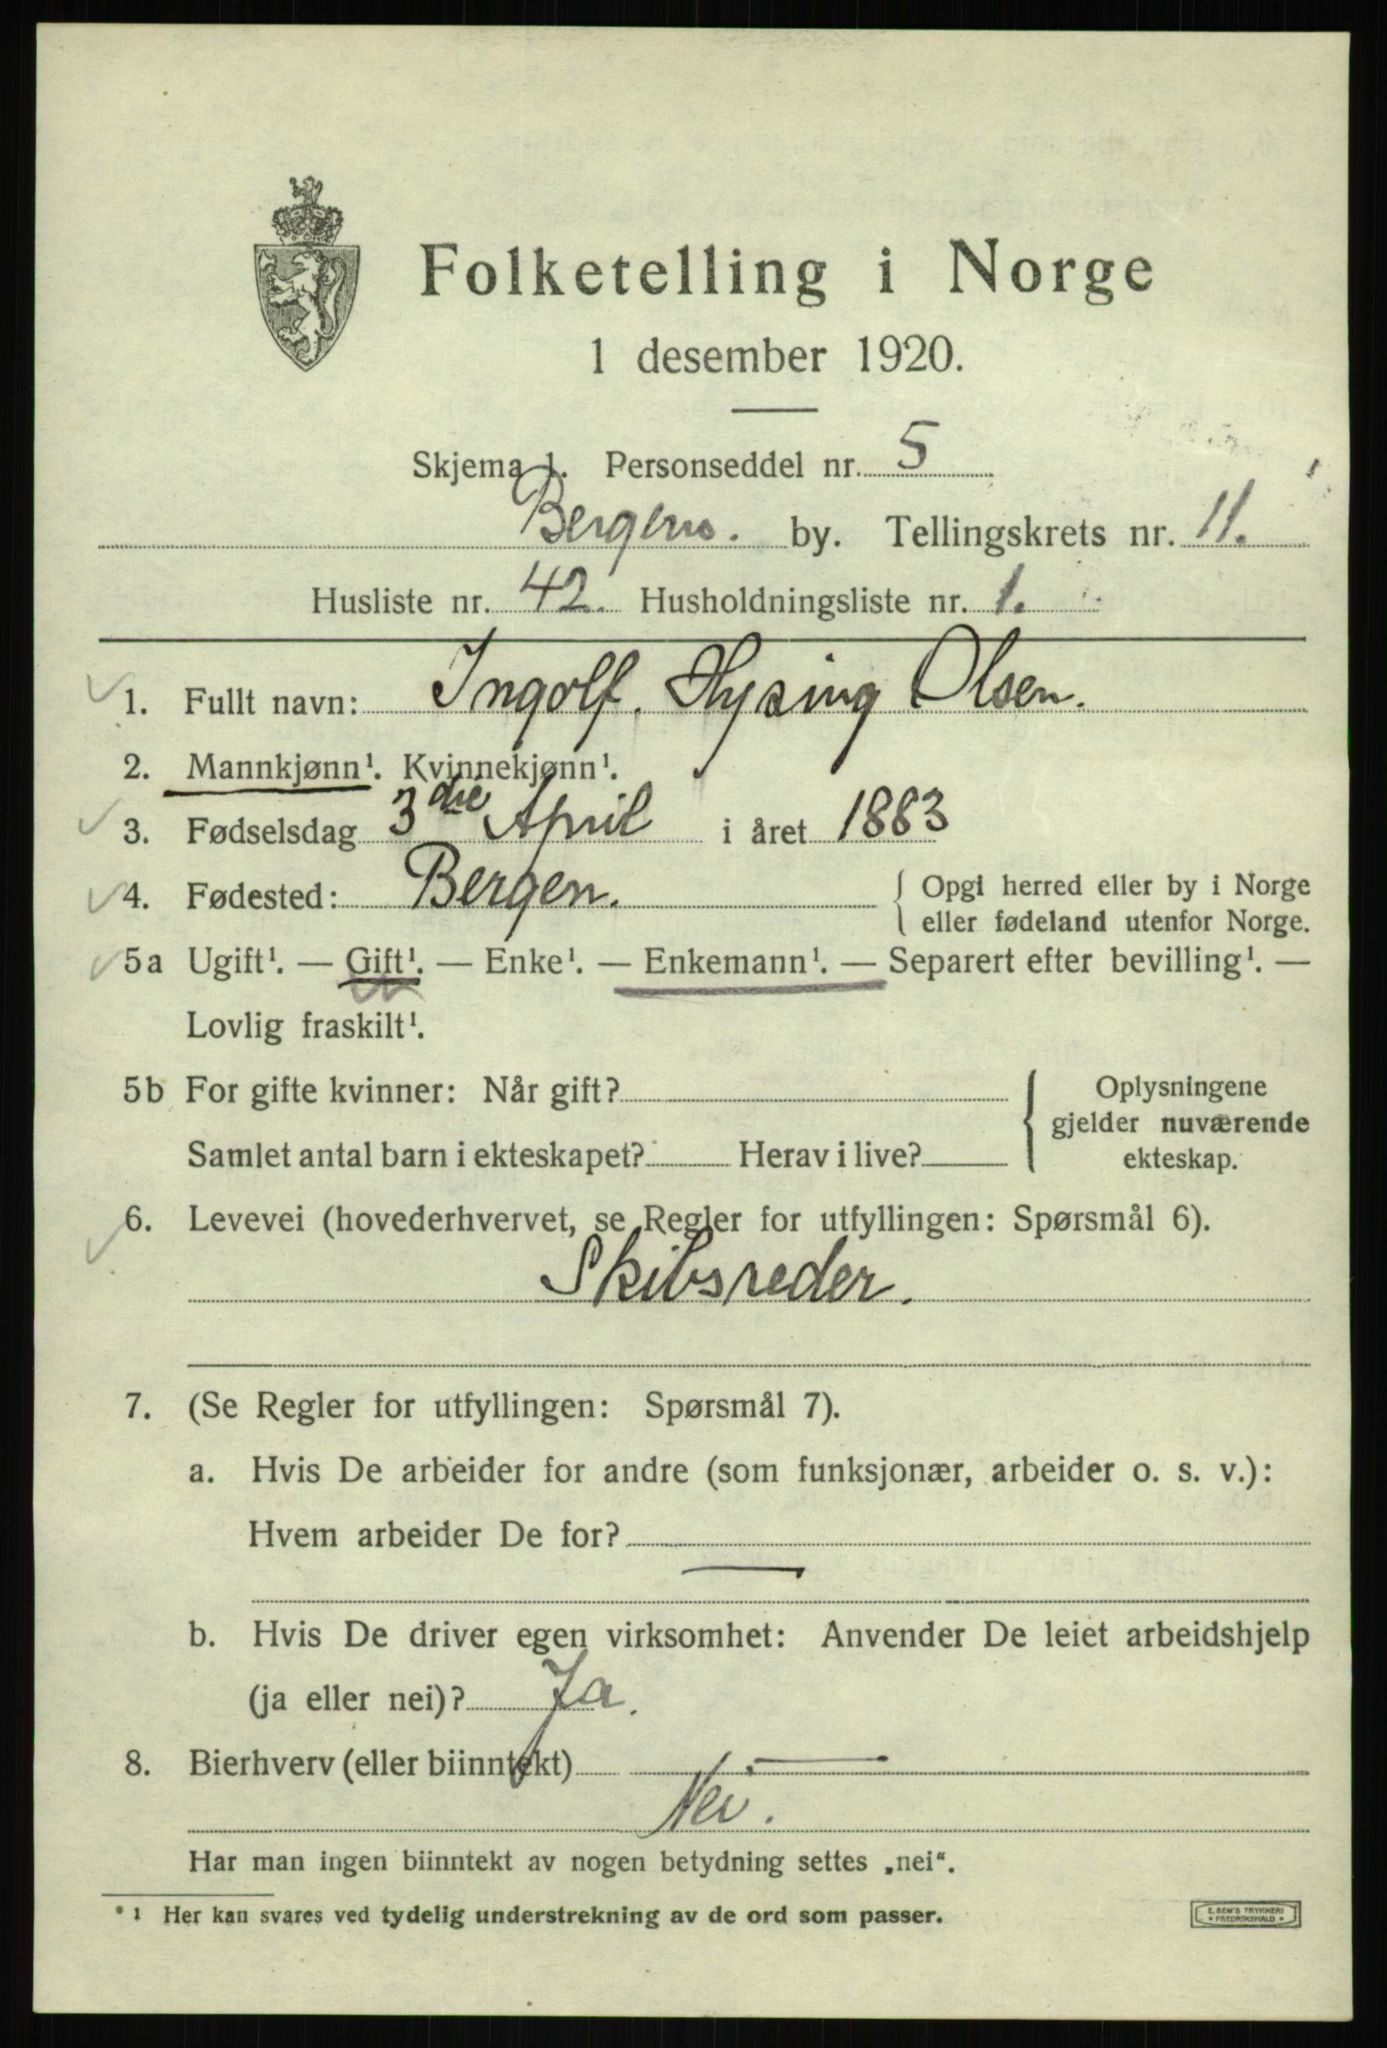 Folketelling i Norge
1 desember 1920.
Skjema 1. Personseddel nr. 5
Bergens. by. Tellingskrets nr. 11.
Husliste nr. 42. Husholdningsliste nr. 1.
1. Fullt navn: Ingolf Hysing Olsen.
2. Mannkjønn¹. Kvinnekjønn¹.
3. Fødselsdag 3die April i året 1883
4. Fødested: Bergen. { Opgi herred eller by i Norge
eller fødeland utenfor Norge.
5a Ugift¹. — Gift¹. — Enke¹. — Enkemann¹. — Separert efter bevilling¹. —
Lovlig fraskilt¹.
5b For gifte kvinner: Når gift? { Oplysningene
gjelder nuværende
Samlet antal barn i ekteskapet? Herav i live? ekteskap.
6. Levevei (hovederhvervet, se Regler for utfyllingen: Spørsmål 6).
Skibsreder.
7. (Se Regler for utfyllingen: Spørsmål 7).
a. Hvis De arbeider for andre (som funksjonær, arbeider o. s. v.):
Hvem arbeider De for? —
b. Hvis De driver egen virksomhet: Anvender De leiet arbeidshjelp
(ja eller nei)? Ja.
8. Bierhverv (eller biinntekt) —
Nei.
Har man ingen biinntekt av nogen betydning settes „nei“.
¹ Her kan svares ved tydelig understrekning av de ord som passer.
E. SEM'S TRYKKERI
FREDRIKSHALD